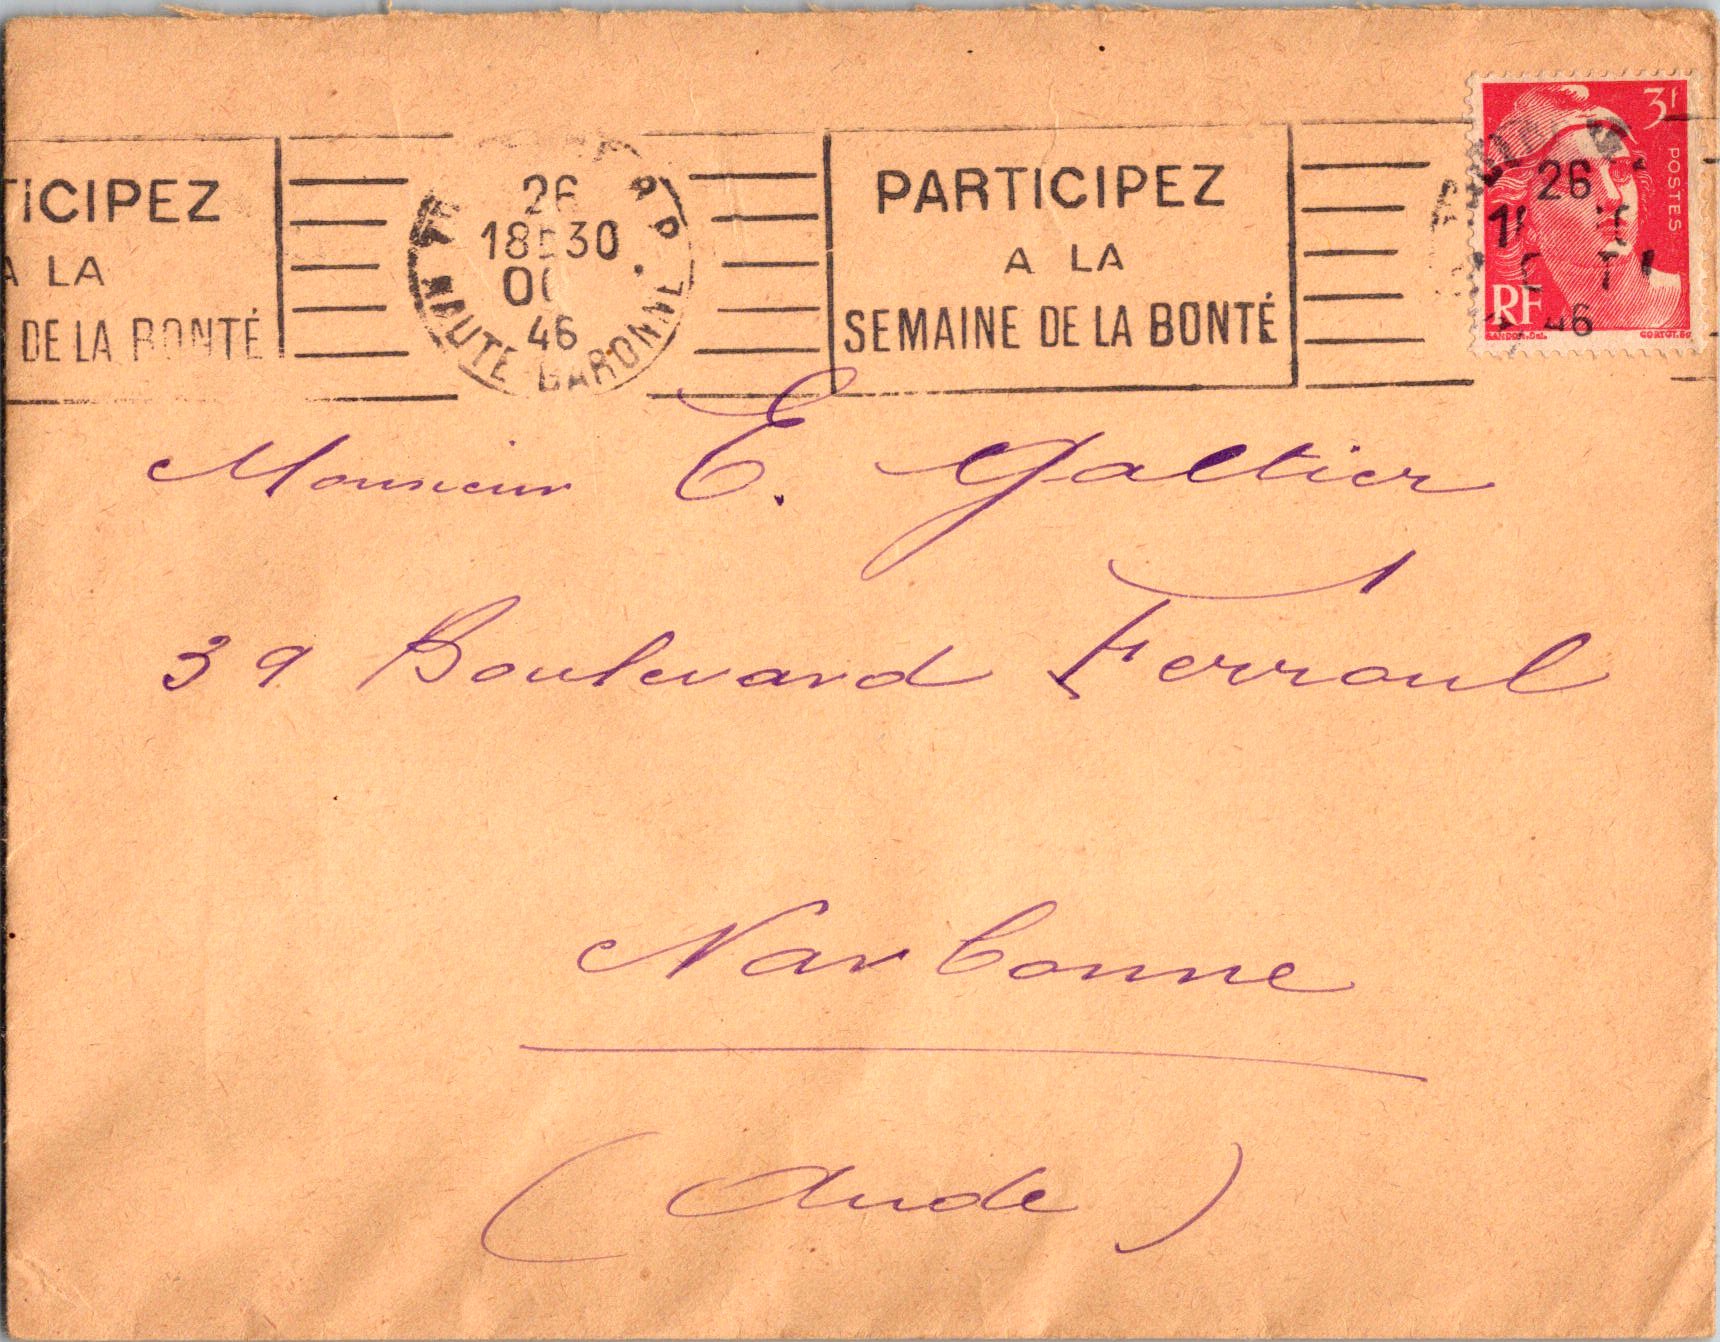 TICIPEZ
A LA
DE LA BONTÉ
26
18 30
46
HAUTE-GARONNE
PARTICIPEZ
A LA
SEMAINE DE LA BONTÉ
3f
POSTES
26
46
RF
GANDON.Del.
CORTOT.Sc
Monsieur E. Galtier
39 Boulevard Ferroul
Narbonne
(Aude)